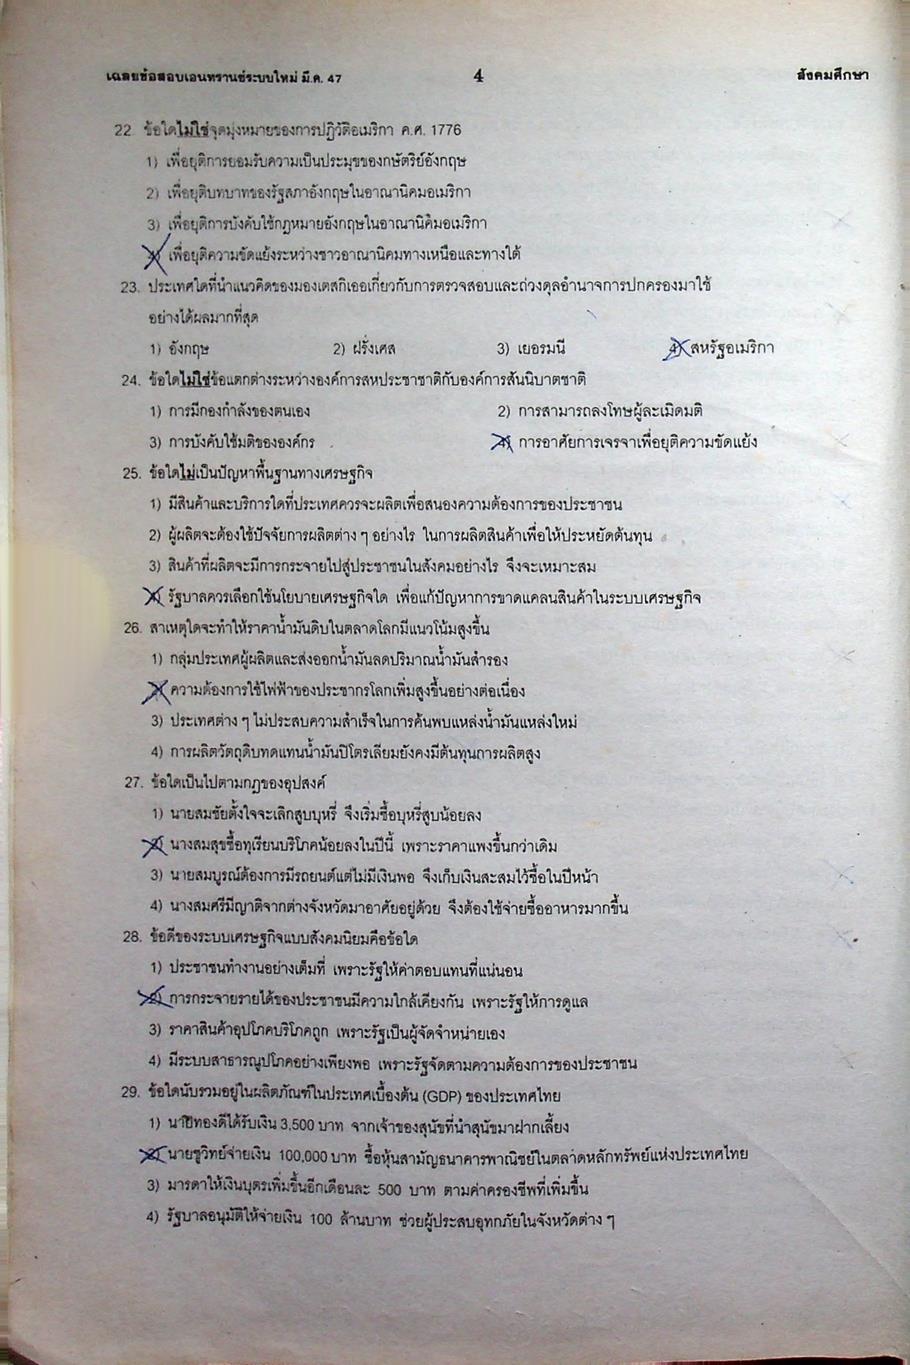 เฉลยข้อสอบเอนทรานซ์ระบบใหม่ มี.ค. 47 4 สังคมศึกษา
22. ข้อใดไม่ใช่จุดมุ่งหมายของการปฏิวัติอเมริกา ค.ศ. 1776
1) เพื่อยุติการยอมรับความเป็นประมุขของกษัตริย์อังกฤษ
2) เพื่อยุติบทบาทของรัฐสภาอังกฤษในอาณานิคมอเมริกา
3) เพื่อยุติการบังคับใช้กฎหมายอังกฤษในอาณานิคมอเมริกา
4) เพื่อยุติความขัดแย้งระหว่างชาวอาณานิคมทางเหนือและทางใต้
23. ประเทศใดที่นำแนวคิดของมองเตสกิเออเกี่ยวกับการตรวจสอบและถ่วงดุลอำนาจการปกครองมาใช้
อย่างได้ผลมากที่สุด
1) อังกฤษ 2) ฝรั่งเศส 3) เยอรมนี 4) สหรัฐอเมริกา
24. ข้อใดไม่ใช่ข้อแตกต่างระหว่างองค์การสหประชาชาติกับองค์การสันนิบาตชาติ
1) การมีกองกำลังของตนเอง 2) การสามารถลงโทษผู้ละเมิดมติ
3) การบังคับใช้มติขององค์กร 4) การอาศัยการเจรจาเพื่อยุติความขัดแย้ง
25. ข้อใดไม่เป็นปัญหาพื้นฐานทางเศรษฐกิจ
1) มีสินค้าและบริการใดที่ประเทศควรจะผลิตเพื่อสนองความต้องการของประชาชน
2) ผู้ผลิตจะต้องใช้ปัจจัยการผลิตต่าง ๆ อย่างไร ในการผลิตสินค้าเพื่อให้ประหยัดต้นทุน
3) สินค้าที่ผลิตจะมีการกระจายไปสู่ประชาชนในสังคมอย่างไร จึงจะเหมาะสม
4) รัฐบาลควรเลือกใช้นโยบายเศรษฐกิจใด เพื่อแก้ปัญหาการขาดแคลนสินค้าในระบบเศรษฐกิจ
26. สาเหตุใดจะทำให้ราคาน้ำมันดิบในตลาดโลกมีแนวโน้มสูงขึ้น
1) กลุ่มประเทศผู้ผลิตและส่งออกน้ำมันลดปริมาณน้ำมันสำรอง
2) ความต้องการใช้ไฟฟ้าของประชากรโลกเพิ่มสูงขึ้นอย่างต่อเนื่อง
3) ประเทศต่าง ๆ ไม่ประสบความสำเร็จในการค้นพบแหล่งน้ำมันแหล่งใหม่
4) การผลิตวัตถุดิบทดแทนน้ำมันปิโตรเลียมยังคงมีต้นทุนการผลิตสูง
27. ข้อใดเป็นไปตามกฎของอุปสงค์
1) นายสมชัยตั้งใจจะเลิกสูบบุหรี่ จึงเริ่มซื้อบุหรี่สูบน้อยลง
2) นางสมสุขซื้อทุเรียนบริโภคน้อยลงในปีนี้ เพราะราคาแพงขึ้นกว่าเดิม
3) นายสมบูรณ์ต้องการมีรถยนต์แต่ไม่มีเงินพอ จึงเก็บเงินสะสมไว้ซื้อในปีหน้า
4) นางสมศรีมีญาติจากต่างจังหวัดมาอาศัยอยู่ด้วย จึงต้องใช้จ่ายซื้ออาหารมากขึ้น
28. ข้อดีของระบบเศรษฐกิจแบบสังคมนิยมคือข้อใด
1) ประชาชนทำงานอย่างเต็มที่ เพราะรัฐให้ค่าตอบแทนที่แน่นอน
2) การกระจายรายได้ของประชาชนมีความใกล้เคียงกัน เพราะรัฐให้การดูแล
3) ราคาสินค้าอุปโภคบริโภคถูก เพราะรัฐเป็นผู้จัดจำหน่ายเอง
4) มีระบบสาธารณูปโภคอย่างเพียงพอ เพราะรัฐจัดตามความต้องการของประชาชน
29. ข้อใดนับรวมอยู่ในผลิตภัณฑ์ในประเทศเบื้องต้น (GDP) ของประเทศไทย
1) นายทองดีได้รับเงิน 3,500 บาท จากเจ้าของสุนัขที่นำสุนัขมาฝากเลี้ยง
2) นายชูวิทย์จ่ายเงิน 100,000 บาท ซื้อหุ้นสามัญธนาคารพาณิชย์ในตลาดหลักทรัพย์แห่งประเทศไทย
3) มารดาให้เงินบุตรเพิ่มขึ้นอีกเดือนละ 500 บาท ตามค่าครองชีพที่เพิ่มขึ้น
4) รัฐบาลอนุมัติให้จ่ายเงิน 100 ล้านบาท ช่วยผู้ประสบอุทกภัยในจังหวัดต่าง ๆ